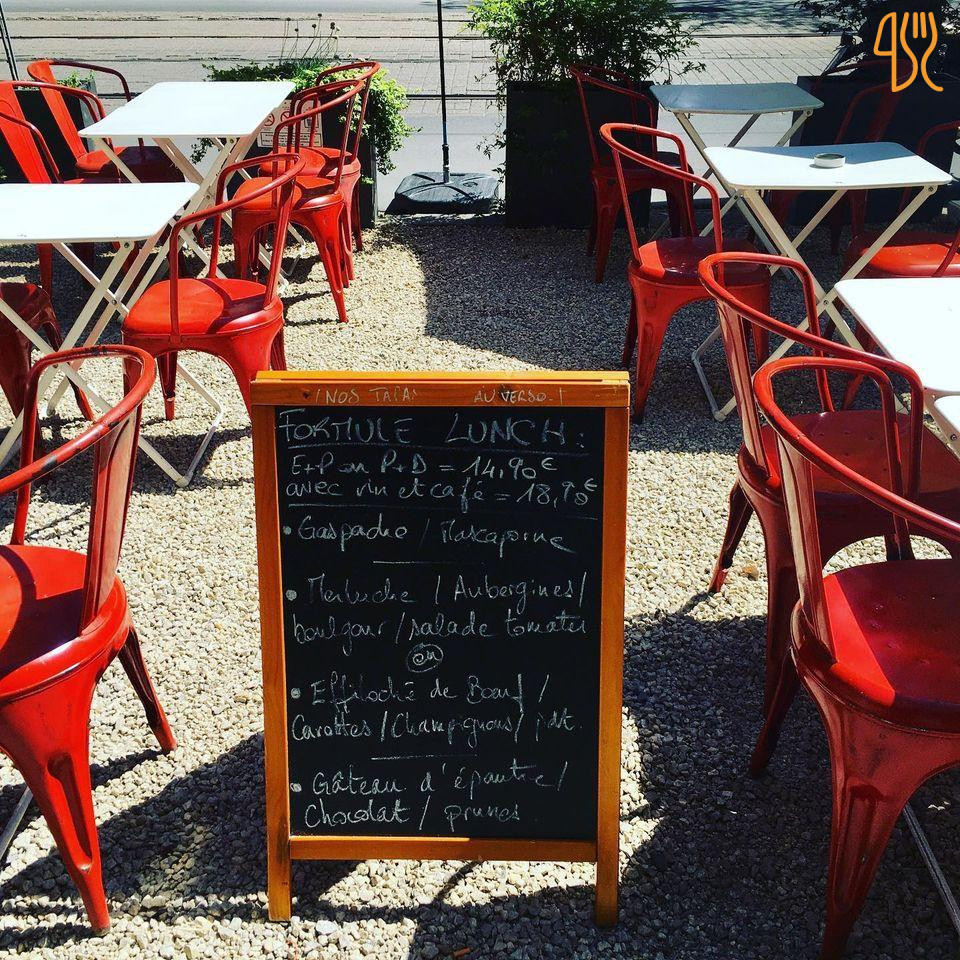 ! NOS TAPAS AU VERSO !
FORMULE LUNCH :
E+P ou P+D = 14,90€
avec vin et café = 18,90€
• Gaspacho / Mascarpone
• Merluche / Aubergines /
boulgour / salade tomates
ou
• Effiloché de Boeuf /
Carottes / Champignons / pdt.
• Gâteau d'épeautre /
Chocolat / prunes